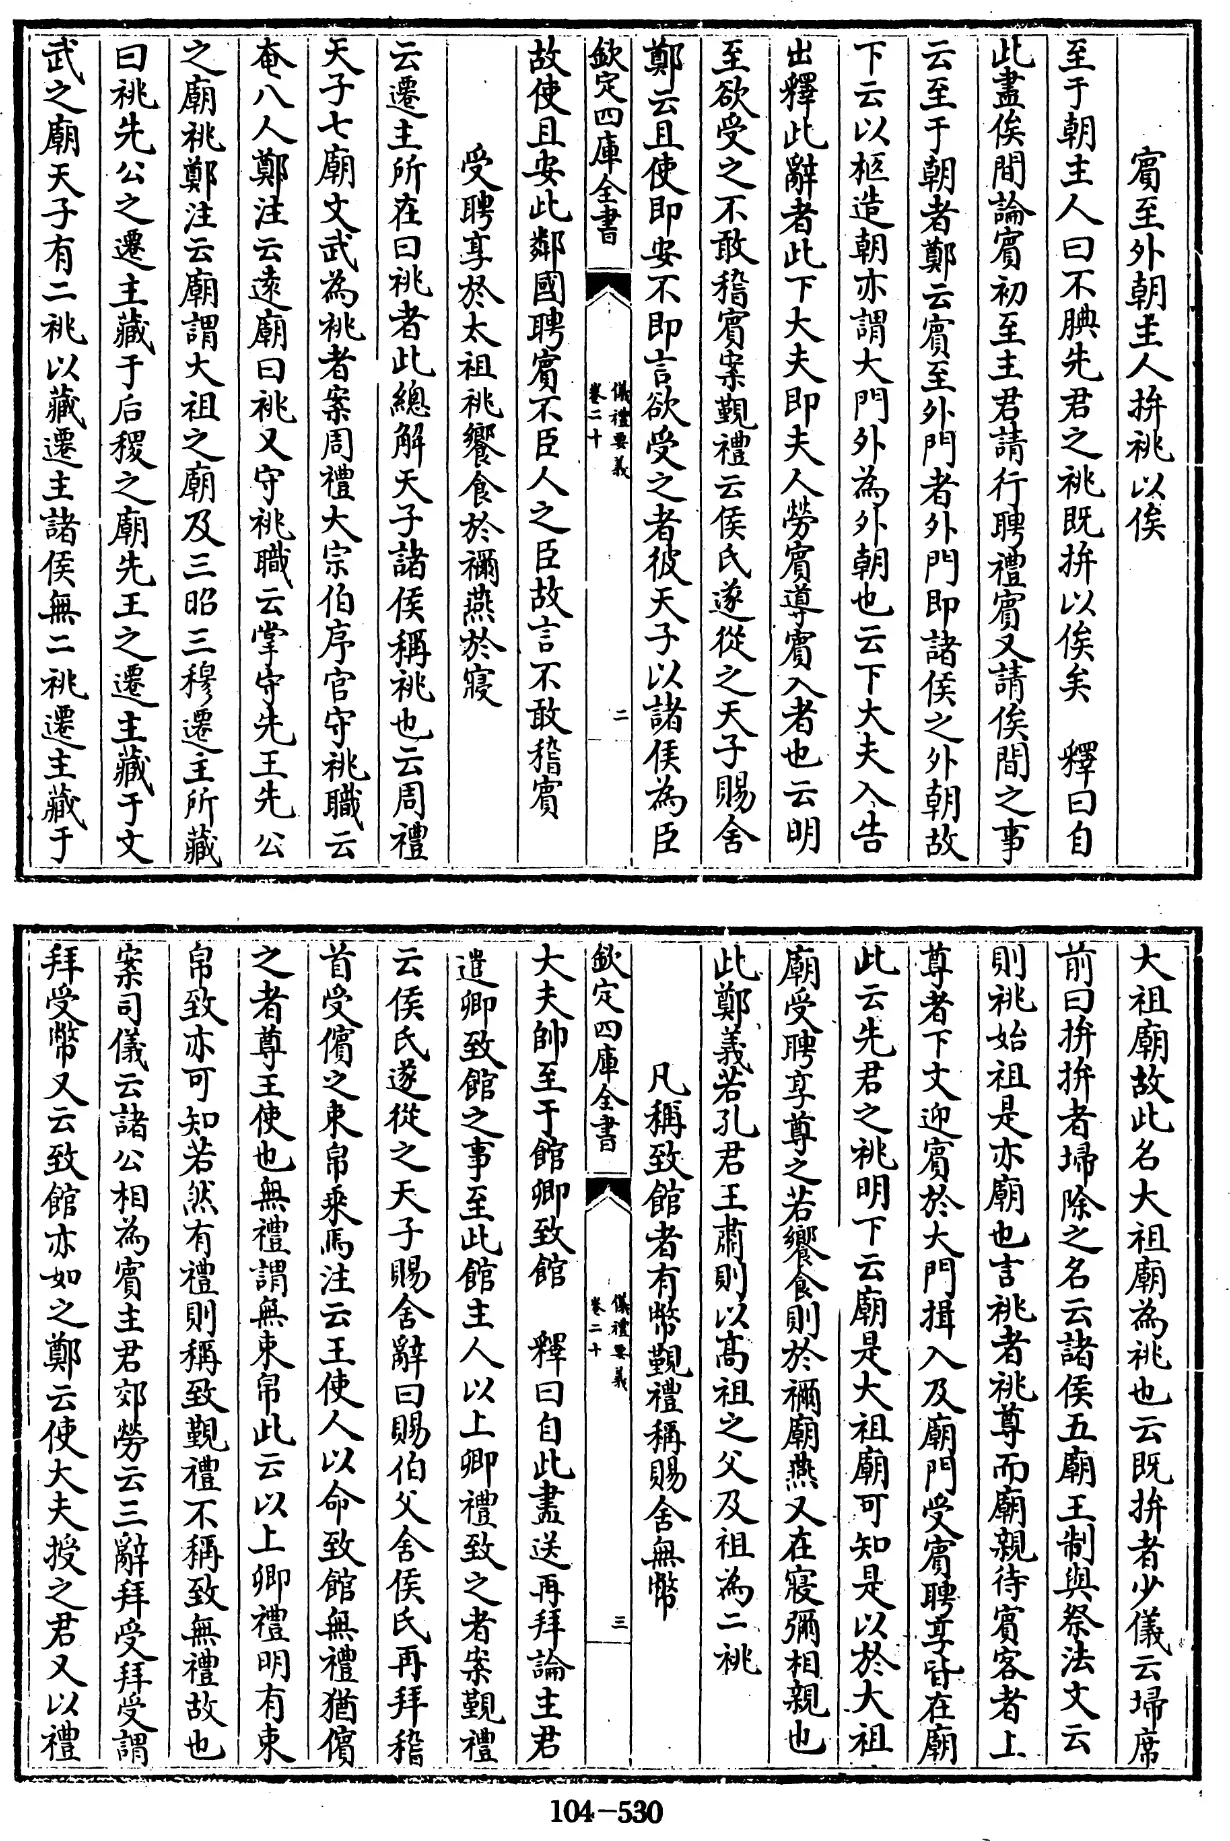 賓至外朝主人拚祧以俟
至于朝主人曰不腆先君之祧既拚以俟矣　釋曰自
此盡俟間論賓初至主君請行聘禮賓又請俟間之事
云至于朝者鄭云賓至外門者外門即諸侯之外朝故
下云以柩造朝亦謂大門外為外朝也云下大夫入告
出釋此辭者此下大夫即夫人勞賓導賓入者也云明
至欲受之不敢稽賓案覲禮云侯氏遂從之天子賜舍
鄭云且使即安不即言欲受之者彼天子以諸侯為臣
欽定四庫全書
儀禮要義
卷二十
二
故使且安此鄰國聘賓不臣人之臣故言不敢稽賓
受聘享於太祖祧饗食於禰燕於寢
云遷主所在曰祧者此總解天子諸侯稱祧也云周禮
天子七廟文武為祧者案周禮大宗伯序官守祧職云
奄八人鄭注云遠廟曰祧又守祧職云掌守先王先公
之廟祧鄭注云廟謂大祖之廟及三昭三穆遷主所藏
曰祧先公之遷主藏于后稷之廟先王之遷主藏于文
武之廟天子有二祧以藏遷主諸侯無二祧遷主藏于
大祖廟故此名大祖廟為祧也云既拚者少儀云埽席
前曰拚拚者埽除之名云諸侯五廟王制與祭法文云
則祧始祖是亦廟也言祧者祧尊而廟親待賓客者上
尊者下文迎賓於大門揖入及廟門受賓聘享皆在廟
此云先君之祧明下云廟是大祖廟可知是以於大祖
廟受聘享尊之若饗食則於禰廟燕又在寢彌相親也
此鄭義若孔君王肅則以高祖之父及祖為二祧
凡稱致館者有幣覲禮稱賜舍無幣
欽定四庫全書
儀禮要義
卷二十
三
大夫帥至于館卿致館　釋曰自此盡送再拜論主君
遣卿致館之事至此館主人以上卿禮致之者案覲禮
云侯氏遂從之天子賜舍辭曰賜伯父舍侯氏再拜稽
首受儐之束帛乘馬注云王使人以命致館無禮猶儐
之者尊王使也無禮謂無束帛此云以上卿禮明有束
帛致亦可知若然有禮則稱致覲禮不稱致無禮故也
案司儀云諸公相為賓主君郊勞云三辭拜受拜受謂
拜受幣又云致館亦如之鄭云使大夫授之君又以禮
104-530